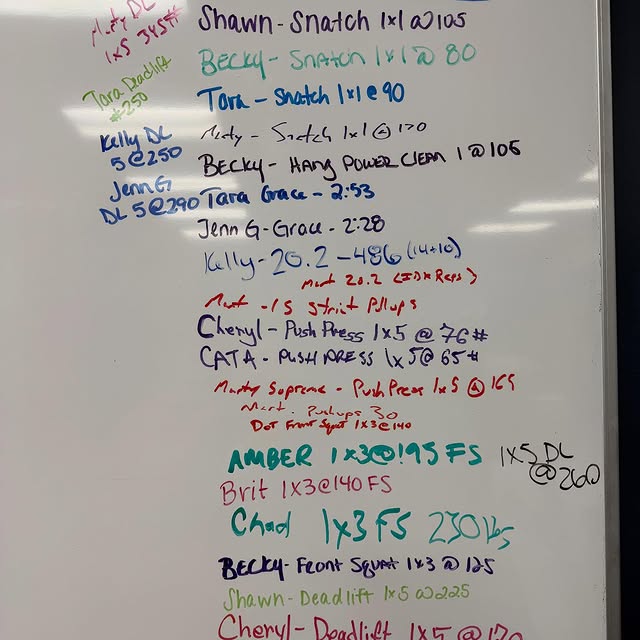 Marty DL
1x5 345#
Tara Deadlift
#250
Kelly DL
5@250
Jenn G
DL 5@290
Shawn - Snatch 1x1 @ 105
Becky - Snatch 1x1 @ 80
Tara - Snatch 1x1 @ 90
Marty - Snatch 1x1 @ 170
Becky - Hang Power Clean 1 @ 105
Tara Grace - 2:53
Jenn G - Grace - 2:28
Kelly - 20.2 - 486 (14+10)
Mart 20.2 ( Reps )
Mart - 15 Strict Pullups
Cheryl - Push Press 1x5 @ 76#
CATA - PUSH PRESS 1x5@ 65#
Marty Supreme - Push Press 1x5 @ 165
Mart. Pushups 30
Dot Front Squat 1x3@140
AMBER 1x3@195 FS 1x5 DL
@260
Brit 1x3@140 FS
Chad 1x3 FS 230 lbs
BECKY - Front Squat 1x3 @ 125
Shawn - Deadlift 1x5 @225
Cheryl - Deadlift 1x5 @170